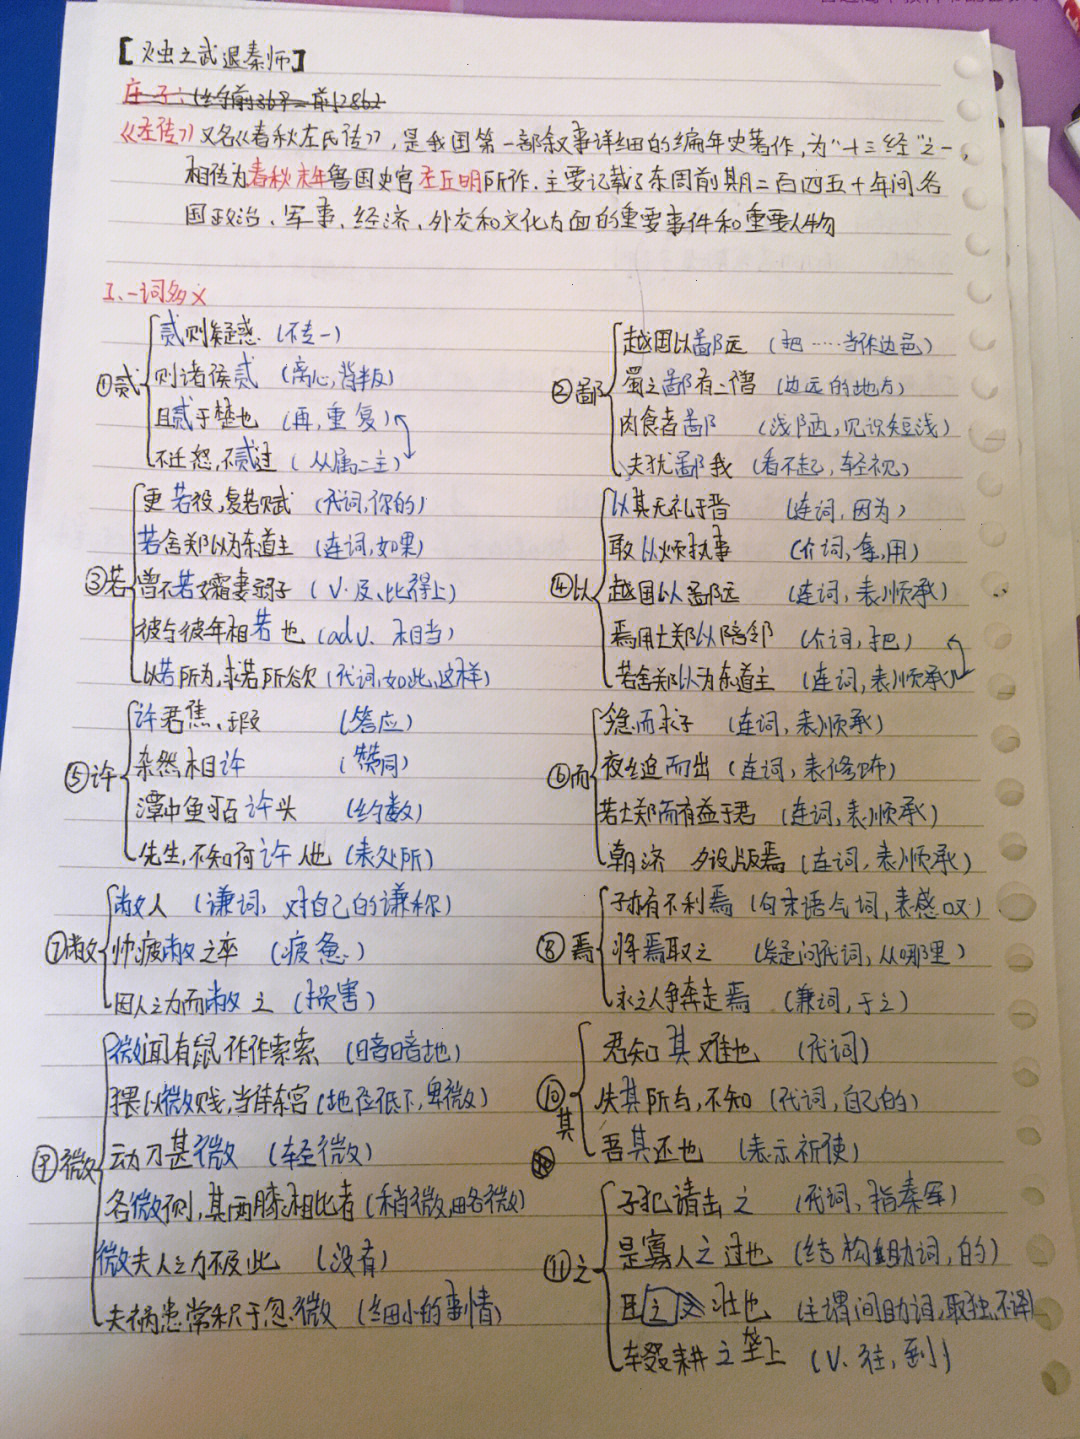 【烛之武退秦师】
庄子：(约前369—前286)
《左传》又名《春秋左氏传》，是我国第一部叙事详细的编年史著作，为"十三经"之一，
相传为春秋末年鲁国史官左丘明所作．主要记载了东周前期二百四五十年间各
国政治、军事、经济、外交和文化方面的重要事件和重要人物
I、一词多义
①贰
贰则疑惑 (不专一)
则诸侯贰 (离心，背叛)
且贰于楚也 (再，重复)
不迁怒，不贰过 (从属二主)
②鄙
越国以鄙远 (把……当作边邑)
蜀之鄙有二僧 (边远的地方)
肉食者鄙 (浅陋，见识短浅)
夫犹鄙我 (看不起，轻视)
③若
更若役，复若赋 (代词，你的)
若舍郑以为东道主 (连词，如果)
曾不若孀妻弱子 (V.及、比得上)
彼与彼年相若也 (adv. 相当)
以若所为，求若所欲 (代词，如此，这样)
④以
以其无礼于晋 (连词，因为)
敢以烦执事 (介词，拿，用)
越国以鄙远 (连词，表顺承)
焉用亡郑以陪邻 (介词，把)
若舍郑以为东道主 (连词，表顺承)
⑤许
许君焦、瑕 (答应)
杂然相许 (赞同)
潭中鱼可百许头 (约数)
先生，不知何许人也 (表处所)
⑥而
今急而求子 (连词，表顺承)
夜缒而出 (连词，表修饰)
若亡郑而有益于君 (连词，表顺承)
朝济 夕设版焉 (连词，表顺承)
⑦敝
敝人 (谦词，对自己的谦称)
帅疲敝之卒 (疲惫)
因人之力而敝之 (损害)
⑧焉
子亦有不利焉 (句末语气词，表感叹)
将焉取之 (疑问代词，从哪里)
永之人争奔走焉 (兼词，于之)
⑨微
微闻有鼠作作索索 (暗暗地)
猥以微贱，当侍东宫 (地位低下，卑微)
动刀甚微 (轻微)
各微侧，其两膝相比者 (稍微，略微)
微夫人之力不及此 (没有)
夫祸患常积于忽微 (细小的事情)
⑩其
君知其难也 (代词)
失其所与，不知 (代词，自己的)
吾其还也 (表示祈使)
⑪之
子犯请击之 (代词，指秦军)
是寡人之过也 (结构组助词，的)
臣之 壮也 (主谓间助词，取独，不译)
辍耕之垄上 (V. 往，到)